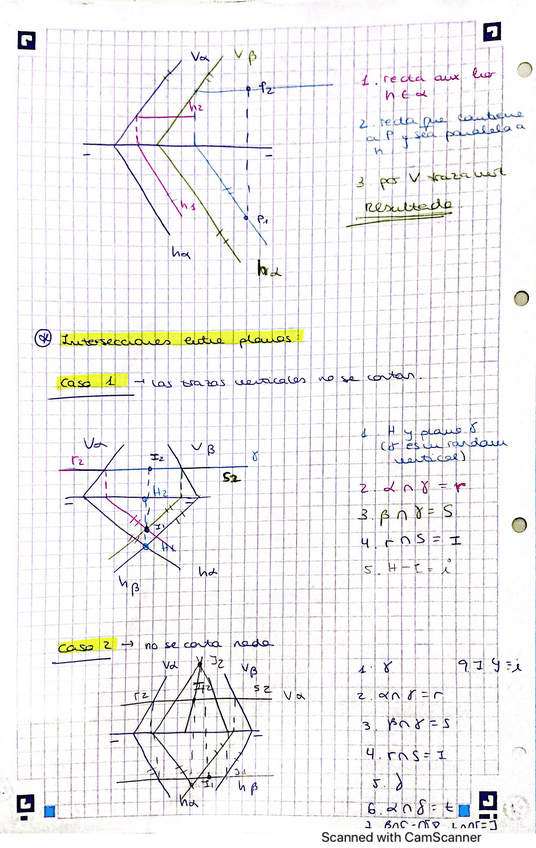 Vα
Vβ
P2
h2
h1
P1
hα
hα
1. recta aux hor
h ∈ α
2. recta que contiene
a P y sea paralela a
h
3. por V traza vert
Resultado
* Intersecciones entre planos:
Caso 1 → Las trazas verticales no se cortan.
Vα
Vβ
r2
I2
γ
s2
H2
I1
H1
hβ
hα
1. H y plano γ
vertical)
2. α ∩ γ = r
3. β ∩ γ = S
4. r ∩ S = I
5. H - I = i
Caso 2 → no se corta nada
Vα
J2
Vβ
r2
I2
s2
Vα
I1
J1
hβ
hα
1. γ
2. α∩γ = r
3. β∩γ = s
4. r∩S = I
5.
6. α∩δ = t
Scanned with CamScanner